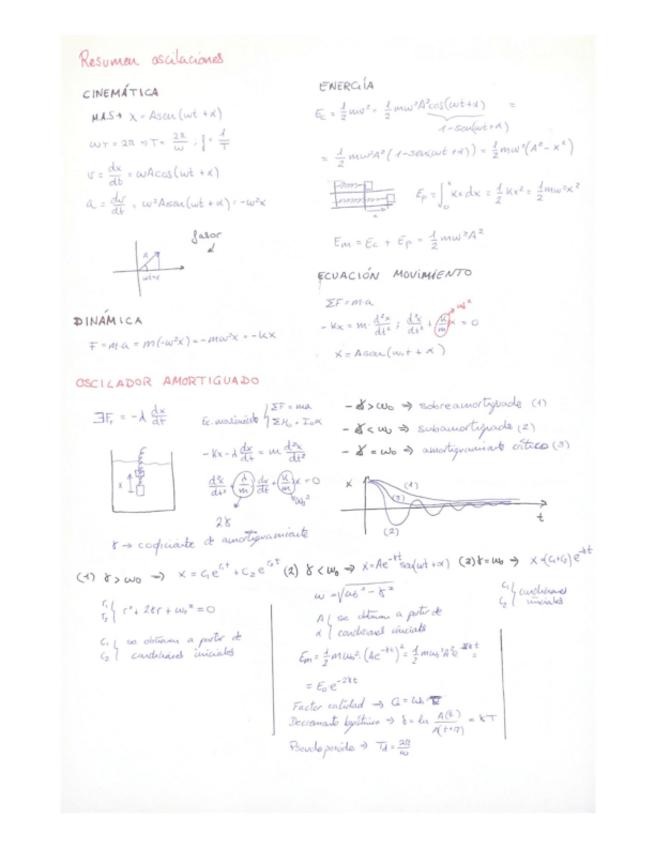 Resumen oscilaciones
CINEMÁTICA
M.A.S → x = A sen (ωt + α)
ωT = 2π ⇒ T = 2π/ω ; f = 1/T
v = dx/dt = ωA cos (ωt + α)
a = dv/dt = ω²A sen (ωt + α) = -ω²x
fasor
A
ωt+α
DINÁMICA
F = m·a = m(-ω²x) = -mω²x = -kx
ENERGÍA
Ec = 1/2 mv² = 1/2 mω²A² cos(ωt+α) =
1-sen(ωt+α)
= 1/2 mω²A² (1-sen(ωt+α)) = 1/2 mω²(A²-x²)
Ep = ∫₀ˣ kx dx = 1/2 kx² = 1/2 mω²x²
Em = Ec + Ep = 1/2 mω²A²
ECUACIÓN MOVIMIENTO
ΣF = m·a
ω²
-kx = m· d²x/dt² ; d²x/dt² + k/m x = 0
x = A sen (ω.t + α)
OSCILADOR AMORTIGUADO
∃Fr = -λ dx/dt
Ec. movimiento { ΣF = ma
-kx - λ dx/dt = m d²x/dt²
d²x/dt² + λ/m dx/dt + k/m x = 0
2γ
ω₀²
x
γ → coeficiente de amortiguamiento
- γ > ω₀ → sobreamortiguado (1)
- γ < ω₀ → subamortiguado (2)
- γ = ω₀ → amortiguamiento crítico (3)
x
(1)
(3)
(2)
t
(1) γ > ω₀ → x = C₁e^(r₁t) + C₂e^(r₂t) (2) γ < ω₀ → x = Ae^(-γt) sen(ωt+α) (3) γ = ω₀ →
r₁ r₂ { r² + 2γr + ω₀² = 0
C₁ C₂ { se obtienen a partir de
condiciones iniciales
ω = √(ω₀² - γ²)
A α { se obtienen a partir de
condiciones iniciales
Em = 1/2 mω₀² · (Ae^(-γt))² = 1/2 mω₀²A²e^(-2γt) =
= E₀e^(-2γt)
Factor calidad →
Decremento logarítmico → δ = ln A(t)/A(t+T) = γT
Pseudoperiodo → Td = 2π/ω
C₁ C₂ { condiciones
iniciales